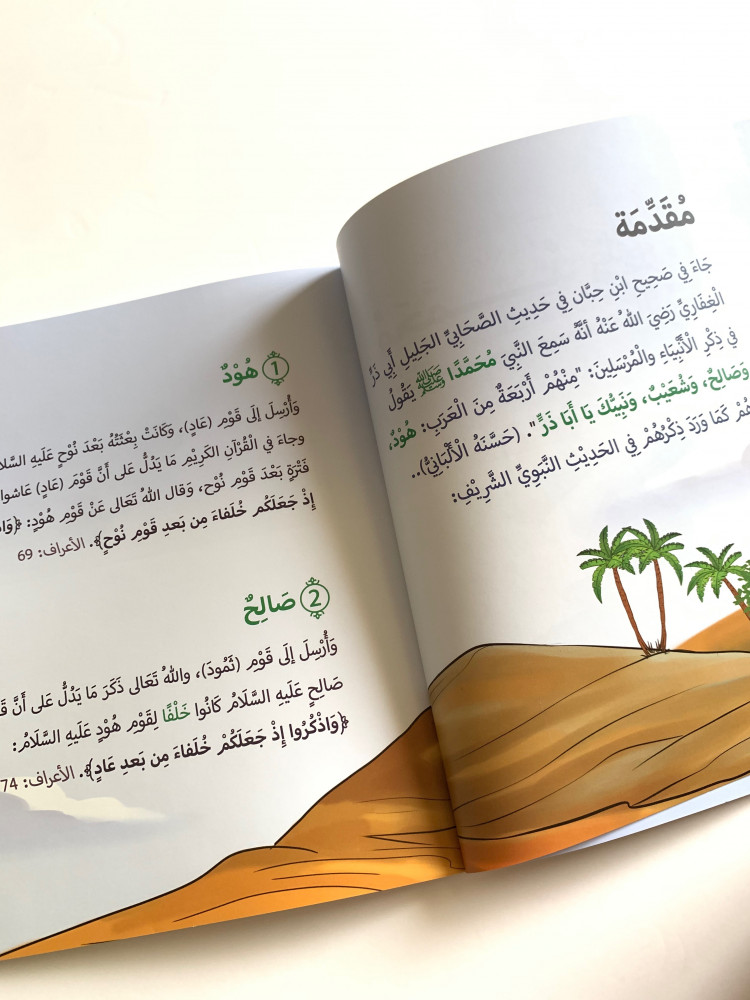 مُقَدِّمَة
جَاءَ فِي صَحِيحِ ابْنِ حِبَّان فِي حَدِيثِ الصَّحَابِيِّ الجَلِيلِ أَبِي ذَرٍّ
الْغِفَارِيِّ رَضِيَ اللهُ عَنْهُ أَنَّهُ سَمِعَ النَّبِيَ مُحَمَّدًا ﷺ يَقُولُ
فِي ذِكْرِ الْأَنْبِيَاءِ وَالْمُرْسَلِينَ: "مِنْهُم أَرْبَعَةٌ مِنَ الْعَرَبِ: هُوْدٌ،
وَصَالِحٌ، وَشُعَيْبٌ، وَنَبِيُّكَ يَا أَبَا ذَرٍّ". (حَسَّنَهُ الْأَلْبَانِيُّ)..
كَمَا وَرَدَ ذِكْرُهُمْ فِي الْحَدِيْثِ النَّبَوِيِّ الشَّرِيْفِ:
1 هُوْدٌ
وَأُرْسِلَ إِلَى قَوْمِ (عَادٍ)، وَكَانَتْ بِعْثَتُهُ بَعْدَ نُوْحٍ عَلَيهِ
وجاءَ في الْقُرْآنِ الكَرِيْمِ مَا يَدُلُّ عَلى أَنَّ قَوْمَ (عَادٍ) عَاشوا
فَتْرَةٍ بَعْدَ قَومِ نُوْح، وَقال اللهُ تَعَالى عَنْ قَومِ هُودٍ:
إِذْ جَعَلَكُم خُلَفاءَ مِن بَعدِ قَوْمِ نُوْحٍ﴾. الأعراف: 69
2 صَالِحٌ
وَأُرْسِلَ إلَى قَوْمِ (ثَمُودَ)، واللهُ تَعَالى ذَكَرَ مَا يَدُلُّ عَلى أَنَّ
صَالِحٍ عَلَيهِ السَّلَامُ كَانُوا خَلْفًا لِقَومِ هُوْدٍ عَلَيهِ السَّلَامُ:
﴿وَاذْكُرُوا إِذْ جَعَلَكُمْ خُلَفاءَ مِن بَعدِ عَادٍ﴾. الأعراف: 74